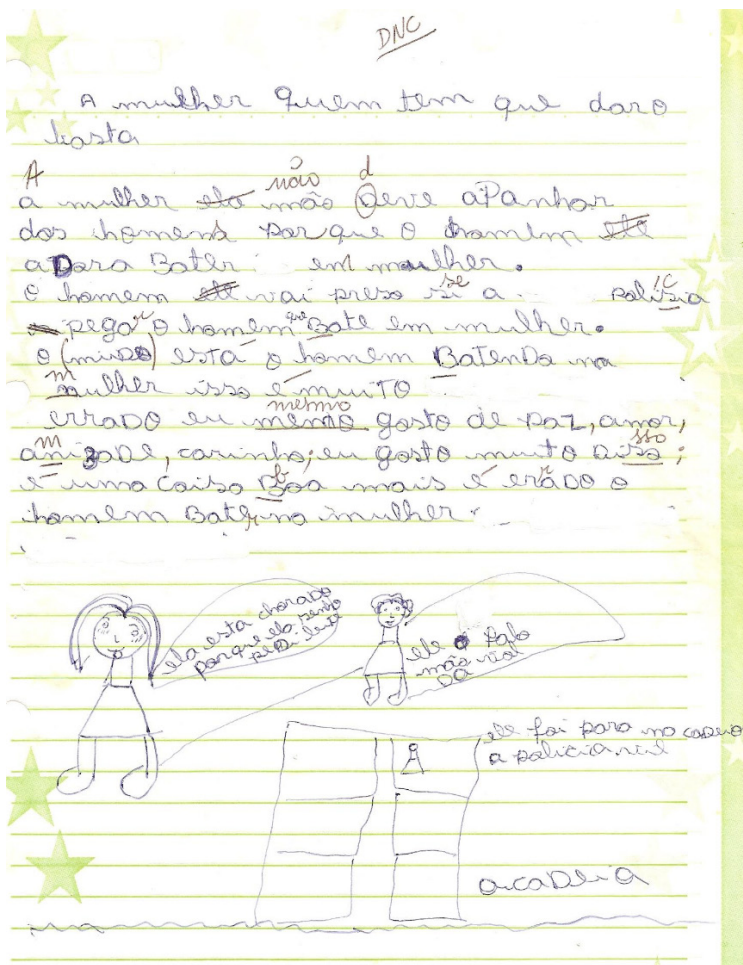 DNC
A mulher quem tem que daro
basta
A não d
a mulher ela mão Deve aPanhar
dos homens porque o homem ele
aDara Bater em mulher.
o homem ele vai preso si a polisia
se ic
pego o homem Bate em mulher.
r que
o (muDo) esta o homem BatenDo na
m
mulher isso é muiTO
mesmo
erraDO eu memo gosto de paz, amor,
m sso
anizaDe, carinho; eu gosto muito Diso;
b r
é uma Coisa Boa mais é eraDO o
homem Bater na mulher.
ela esta chorado
porque ela
ele falo
não vial
Da
ele foi para na caDeia
a policia
a caDeia